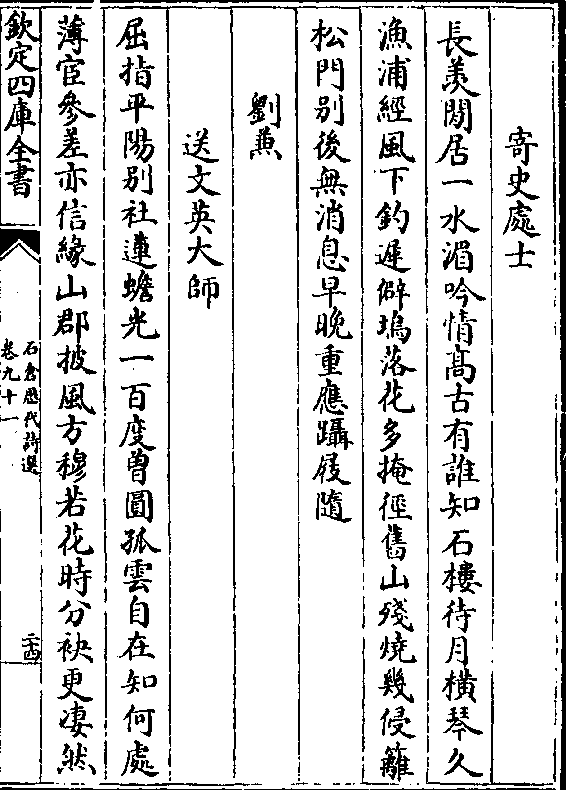 寄史處士
長羨閒居一水湄吟情髙古有誰知石樓待月橫琴久
漁浦經風下釣遲僻塢落花多掩徑舊山殘燒幾侵籬
松門别後無消息早晚重應躡屐隨
劉兼
送文英大師
屈指平陽别社蓮蟾光一百度曽圓孤雲自在知何處
薄宦參差亦信緣山郡披風方穆若花時分袂更凄然
欽定四庫全書
石倉歷代詩選
卷九十一
二十四